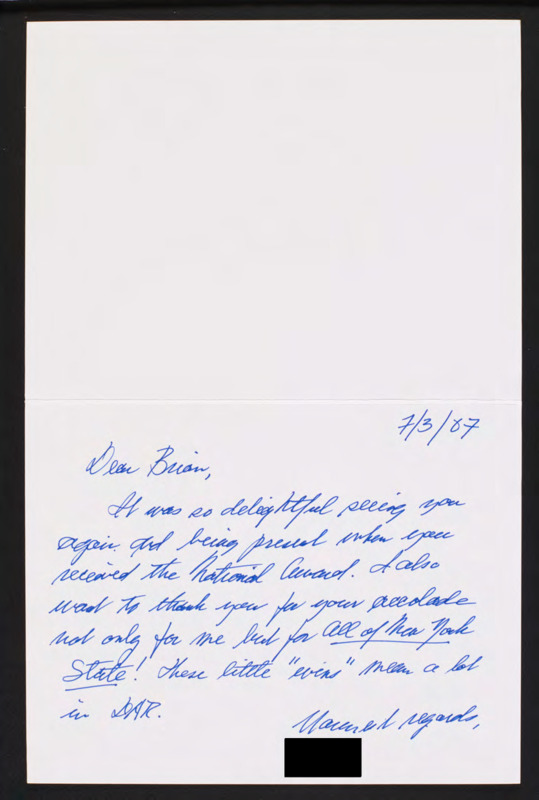 7/3/07
Dear Brian,
It was so delightful seeing you
again and being present when you
received the National Award. I also
want to thank you for your accolade
not only for me but for all of New York
State! These little "wins" mean a lot
in DAR.
Warmest regards,